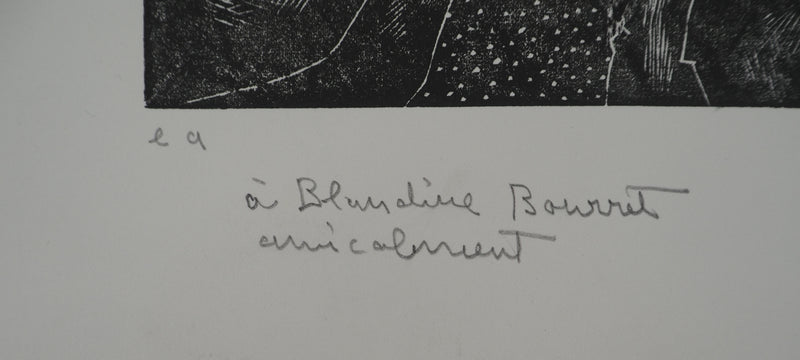 e a
à Blandine Bourret
amicalement